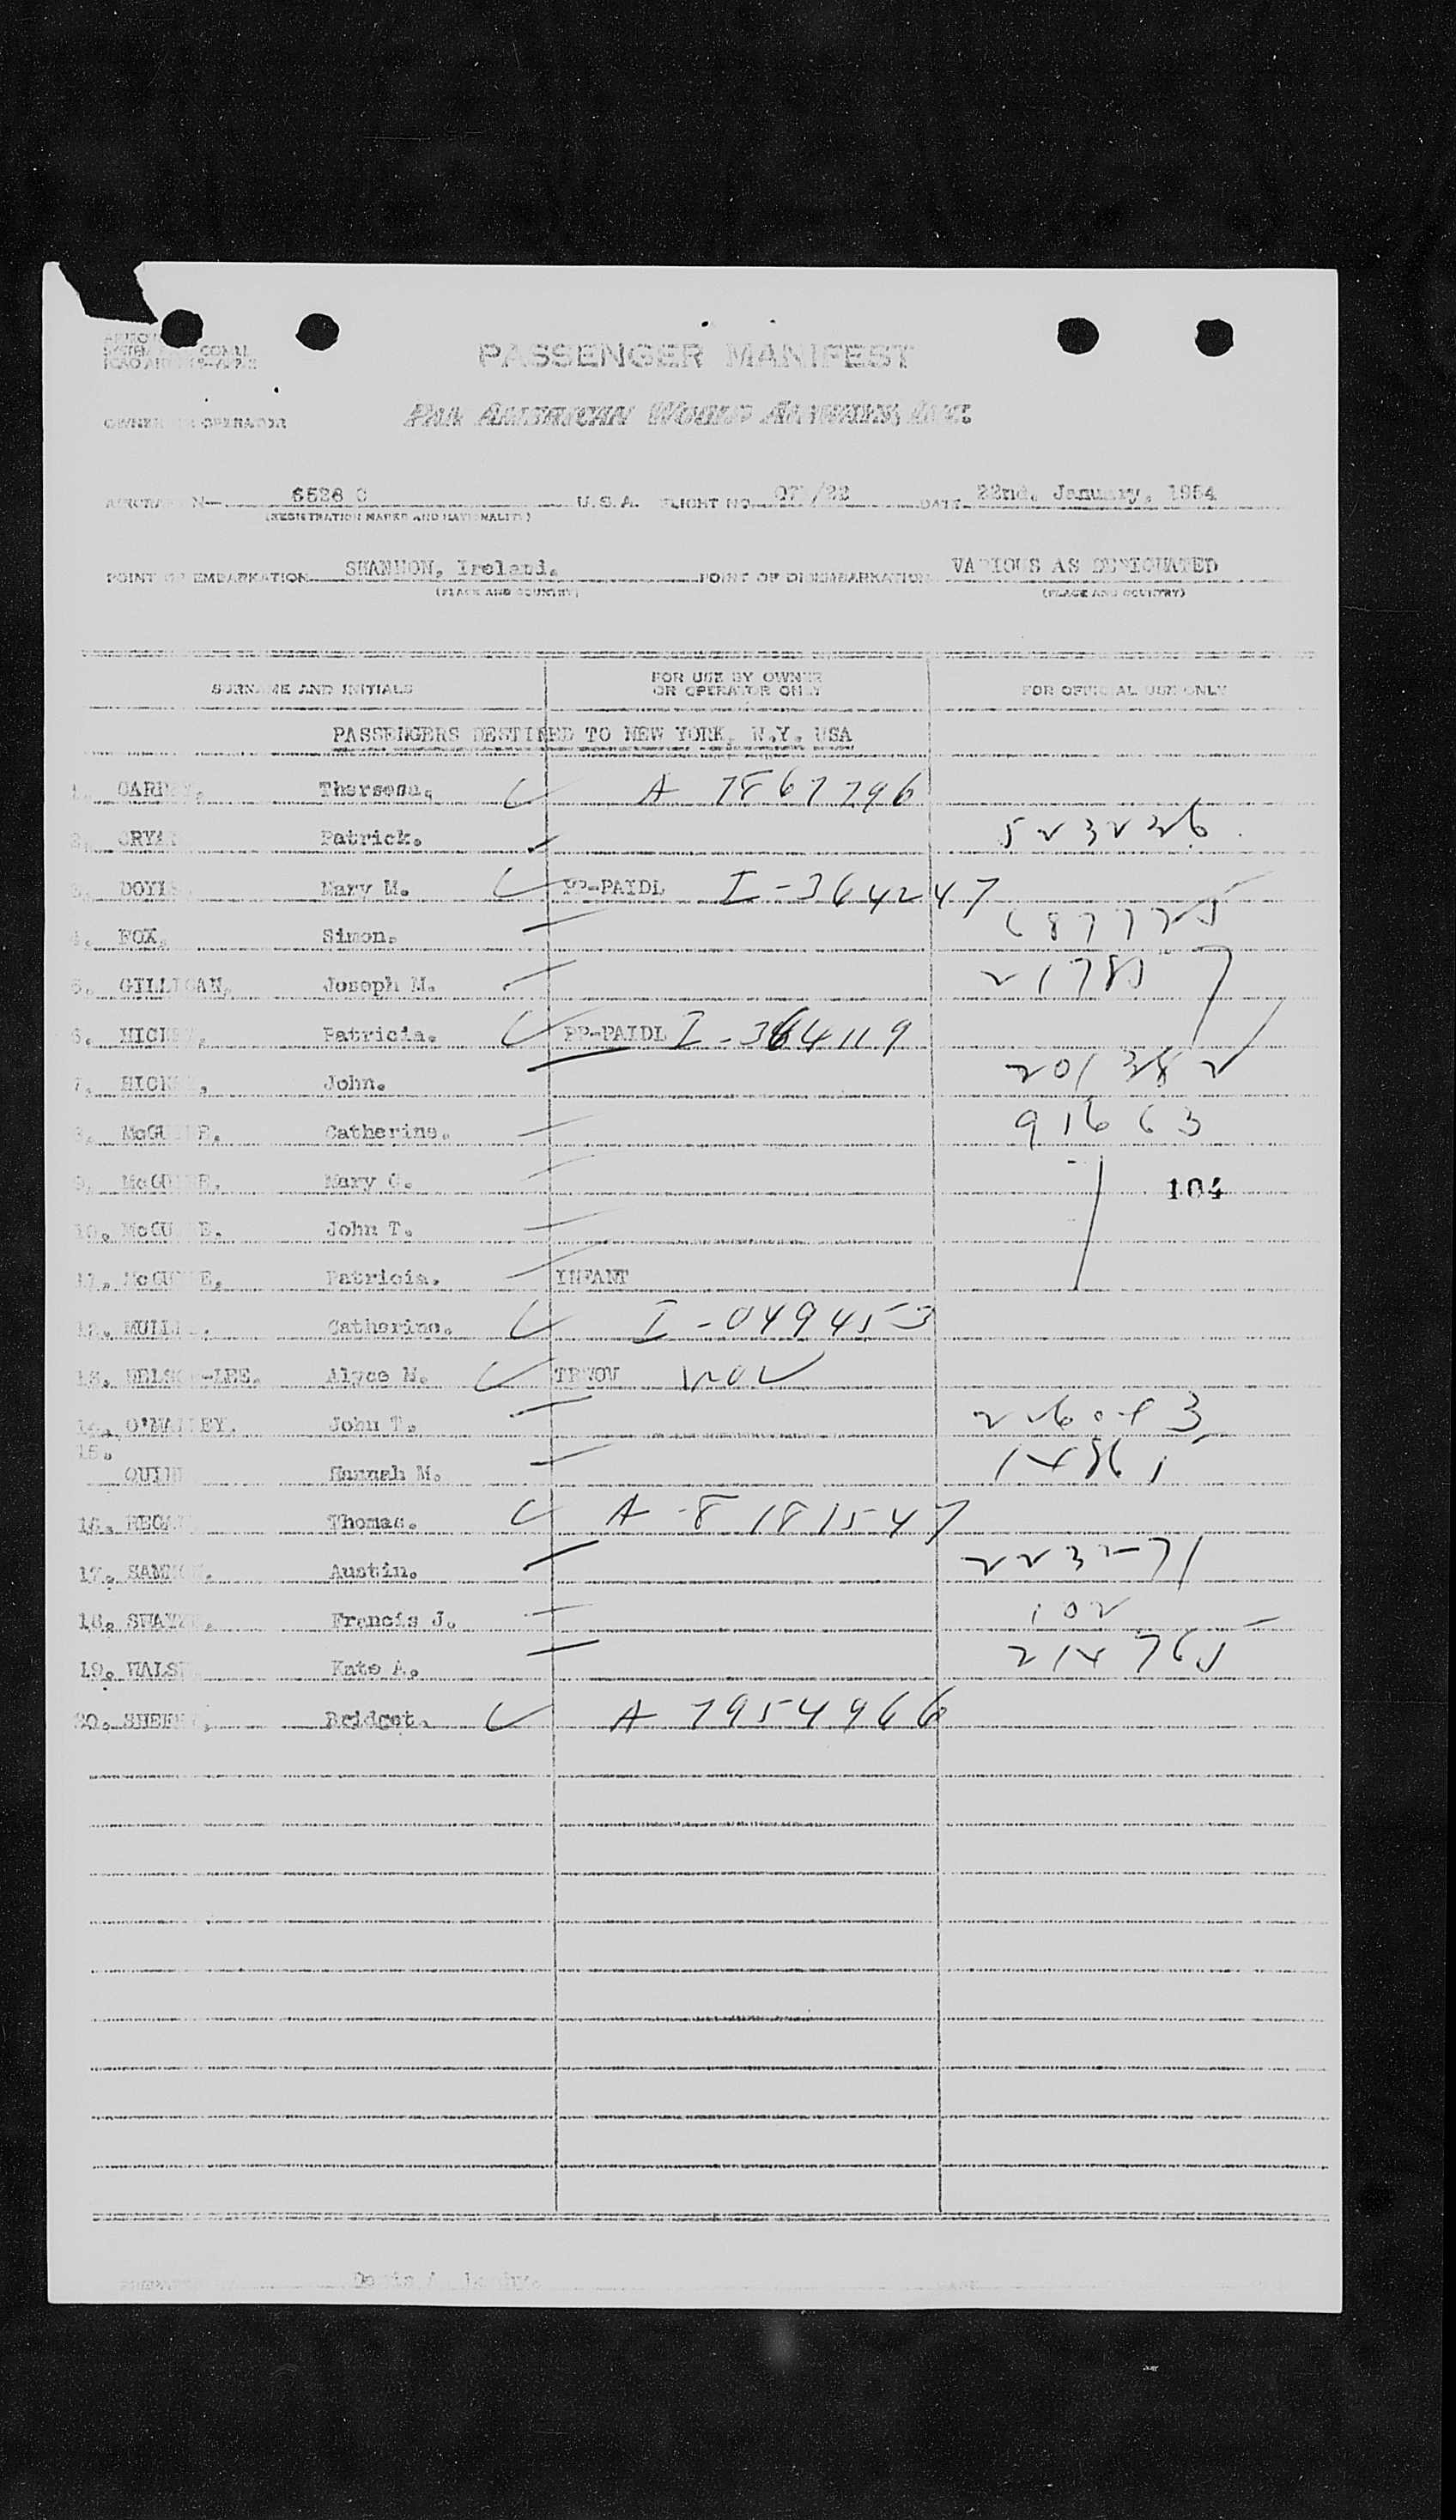 PASSENGER MANIFEST
OWNER OR OPERATOR
PAN AMERICAN WORLD AIRWAYS, INC.
AIRCRAFT N— 6526 C U.S.A. FLIGHT NO. 07 /22 DATE 22nd. January, 1954
(REGISTRATION MARKS AND NATIONALITY)
POINT OF EMBARKATION SHANNON, Ireland. POINT OF DISEMBARKATION VARIOUS AS DESIGNATED
(PLACE AND COUNTRY) (PLACE AND COUNTRY)
SURNAME AND INITIALS FOR USE BY OWNER OR OPERATOR ONLY FOR OFFICIAL USE ONLY
PASSENGERS DESTINED TO NEW YORK, N.Y. USA
1. Theresea. A 7867796
2. Patrick. 523226
3. DOYLE Mary M. PP-PAIDL I-364247
4. FOX, Simon. 687775
5. GILLIGAN, Joseph M. 21785
6. HICKEY, Patricia. PP-PAIDL I-364119
7. HICKEY, John. 201382
8. McGUIRE. Catherine. 91663
9. McGUIRE. Mary C. 104
10. McGUIRE. John T.
11. McGUIRE, Patricia. INFANT
12. Catherine. I-049453
13. NELSON-LEE. Alyce N. TRWOV WOV
14. O'MALLEY. John T.
15.
QUINN Hannah M.
16. REGAN Thomas. A-8181547
17. Austin. 223271
18. Francis J. 102
19. WALSH Kate A. 214765
20. Bridget. A 7954966